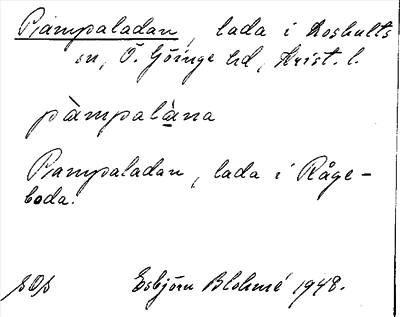 Pampaladan, lada i Loshults
sn, Ö. Göinge hd, Krist. l.
pàmpalàna
Pampaladan, lada i Råge-
boda.
SOS Esbjörn Blohmé 1948.